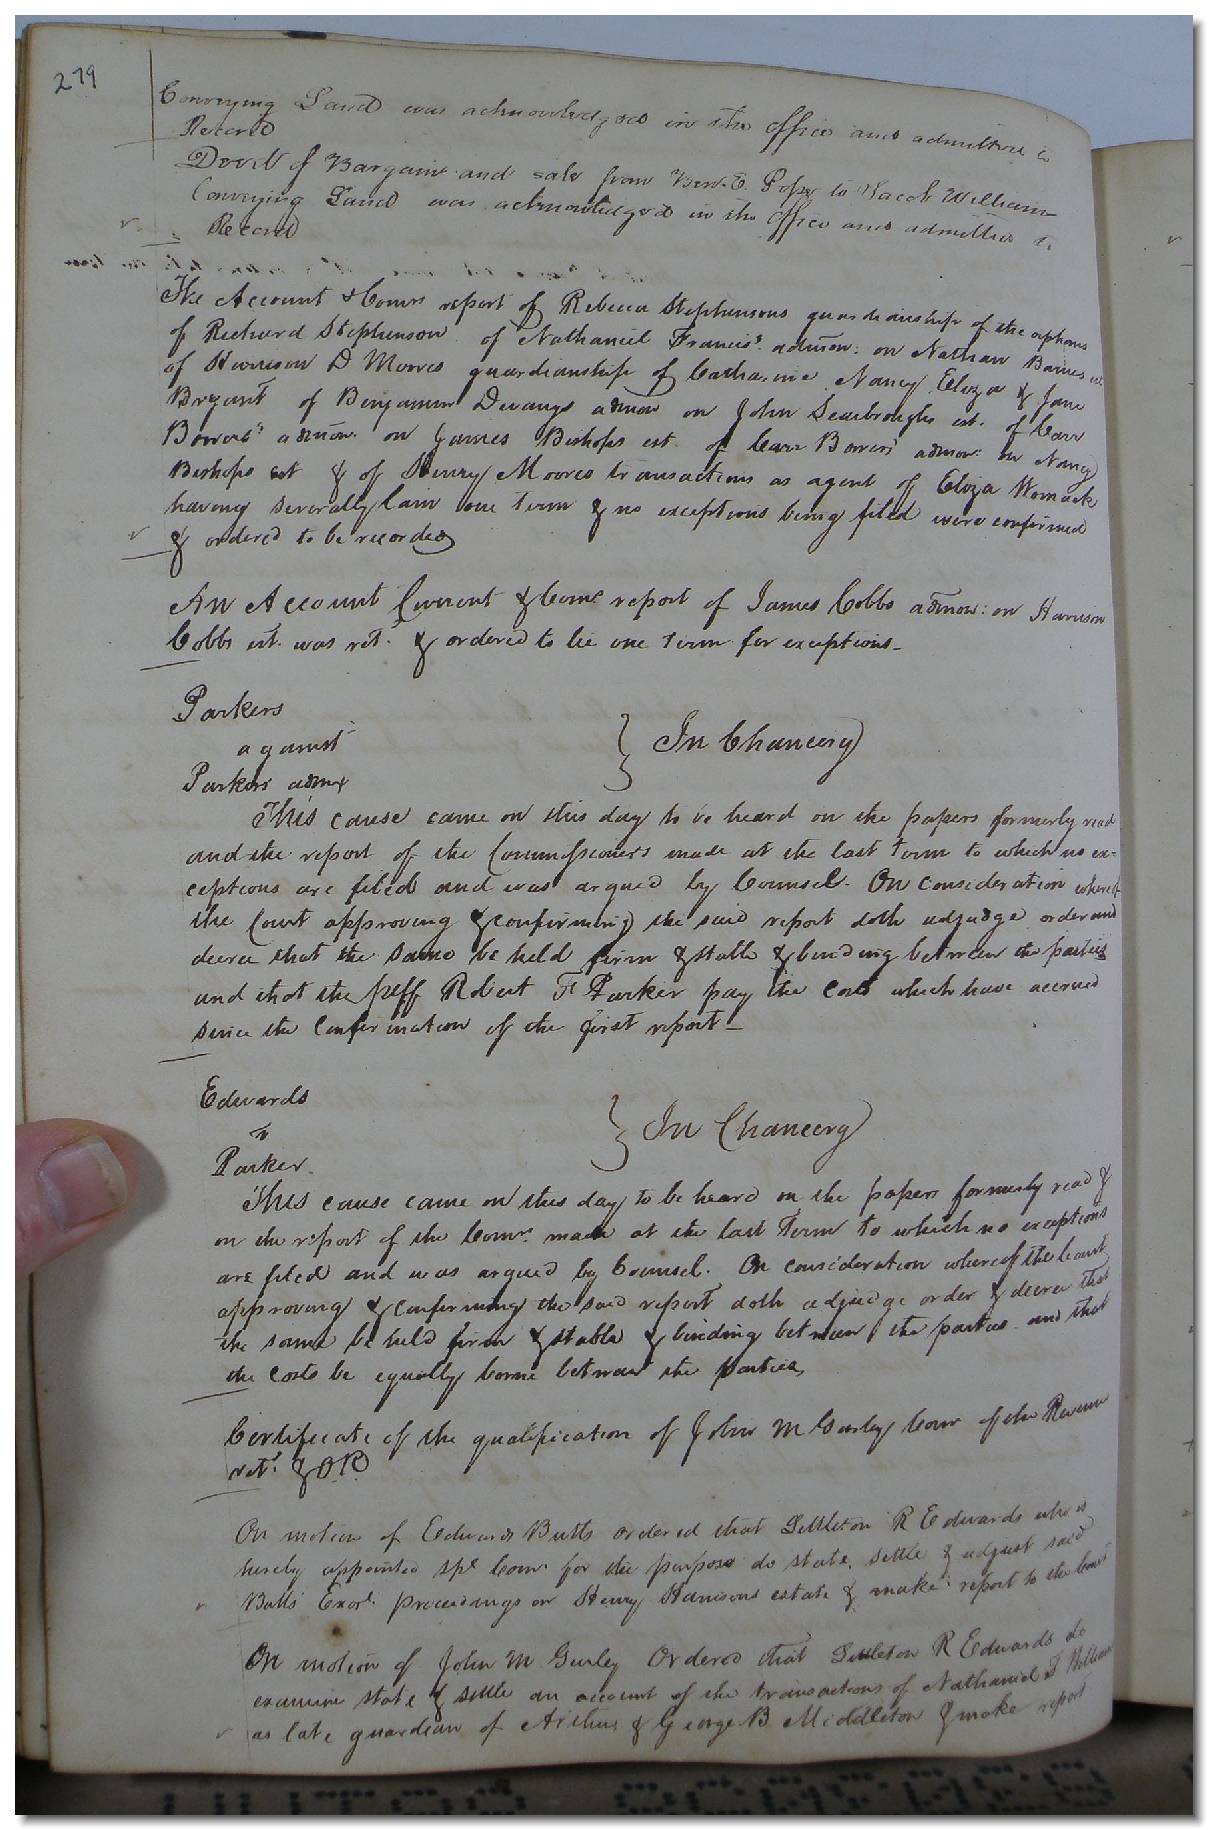 279
Conveying Land was acknowledged in the office and admitted to
Record
Deed of Bargain and sale from Benj. E. Pope to Jacob William
Conveying Land was acknowledged in the office and admitted to
Record
The Account & Comrs report of Rebecca Stephensons guardianship of the orphans
of Richard Stephenson of Nathaniel Francis' admon: on Nathan Barnes est
of Harrison D Moores guardianship of Catharine Nancy Eliza & Jane
Bryant of Benjamin Devanys admon on John Scarbroughs est. of Carr
Bowers' admon. on James Bishops est. of Carr Bowers admon: on Nancy
Bishops est & of Henry Moores transactions as agent of Eliza Womack
having severally lain one term & no exceptions being filed were confirmed
& ordered to be recorded
An Account Current & Comrs report of James Cobbs admon: on Harrison
Cobbs est. was ret. & ordered to lie one term for exceptions -
Parkers
against } In Chancery
Parkers admx
This cause came on this day to be heard on the papers formerly read
and the report of the Commissioners made at the last term to which no ex-
ceptions are filed and was argued by Counsel. On consideration whereof
the Court approving & confirming the said report doth adjudge order and
decree that the same be held firm & stable & binding between the parties
and that the plff Robert F Parker pay the Costs which have accrued
since the confirmation of the first report -
Edwards
vs } In Chancery
Parker.
This cause came on this day to be heard on the papers formerly read &
on the report of the Comrs. made at the last Term to which no exceptions
are filed and was argued by Counsel. On consideration whereof the Court
approving & confirming the said report doth adjudge order & decree that
the same be held firm & stable & binding between the parties and that
the costs be equally borne between the parties
Certificate of the qualification of John M Gurley Comr of the Revenue
ret. & O R
On motion of Edward Butts ordered that Littleton R Edwards who is
hereby appointed spl Comr for the purpose do state, settle & adjust said
Butts Exorl proceedings on Henry Harrisons estate & make report to the Court
On motion of John M Gurley Ordered that Littleton R Edwards do
examine state & settle an account of the transactions of Nathaniel T Williams
as late guardian of Arthur & George B. Middleton & make report